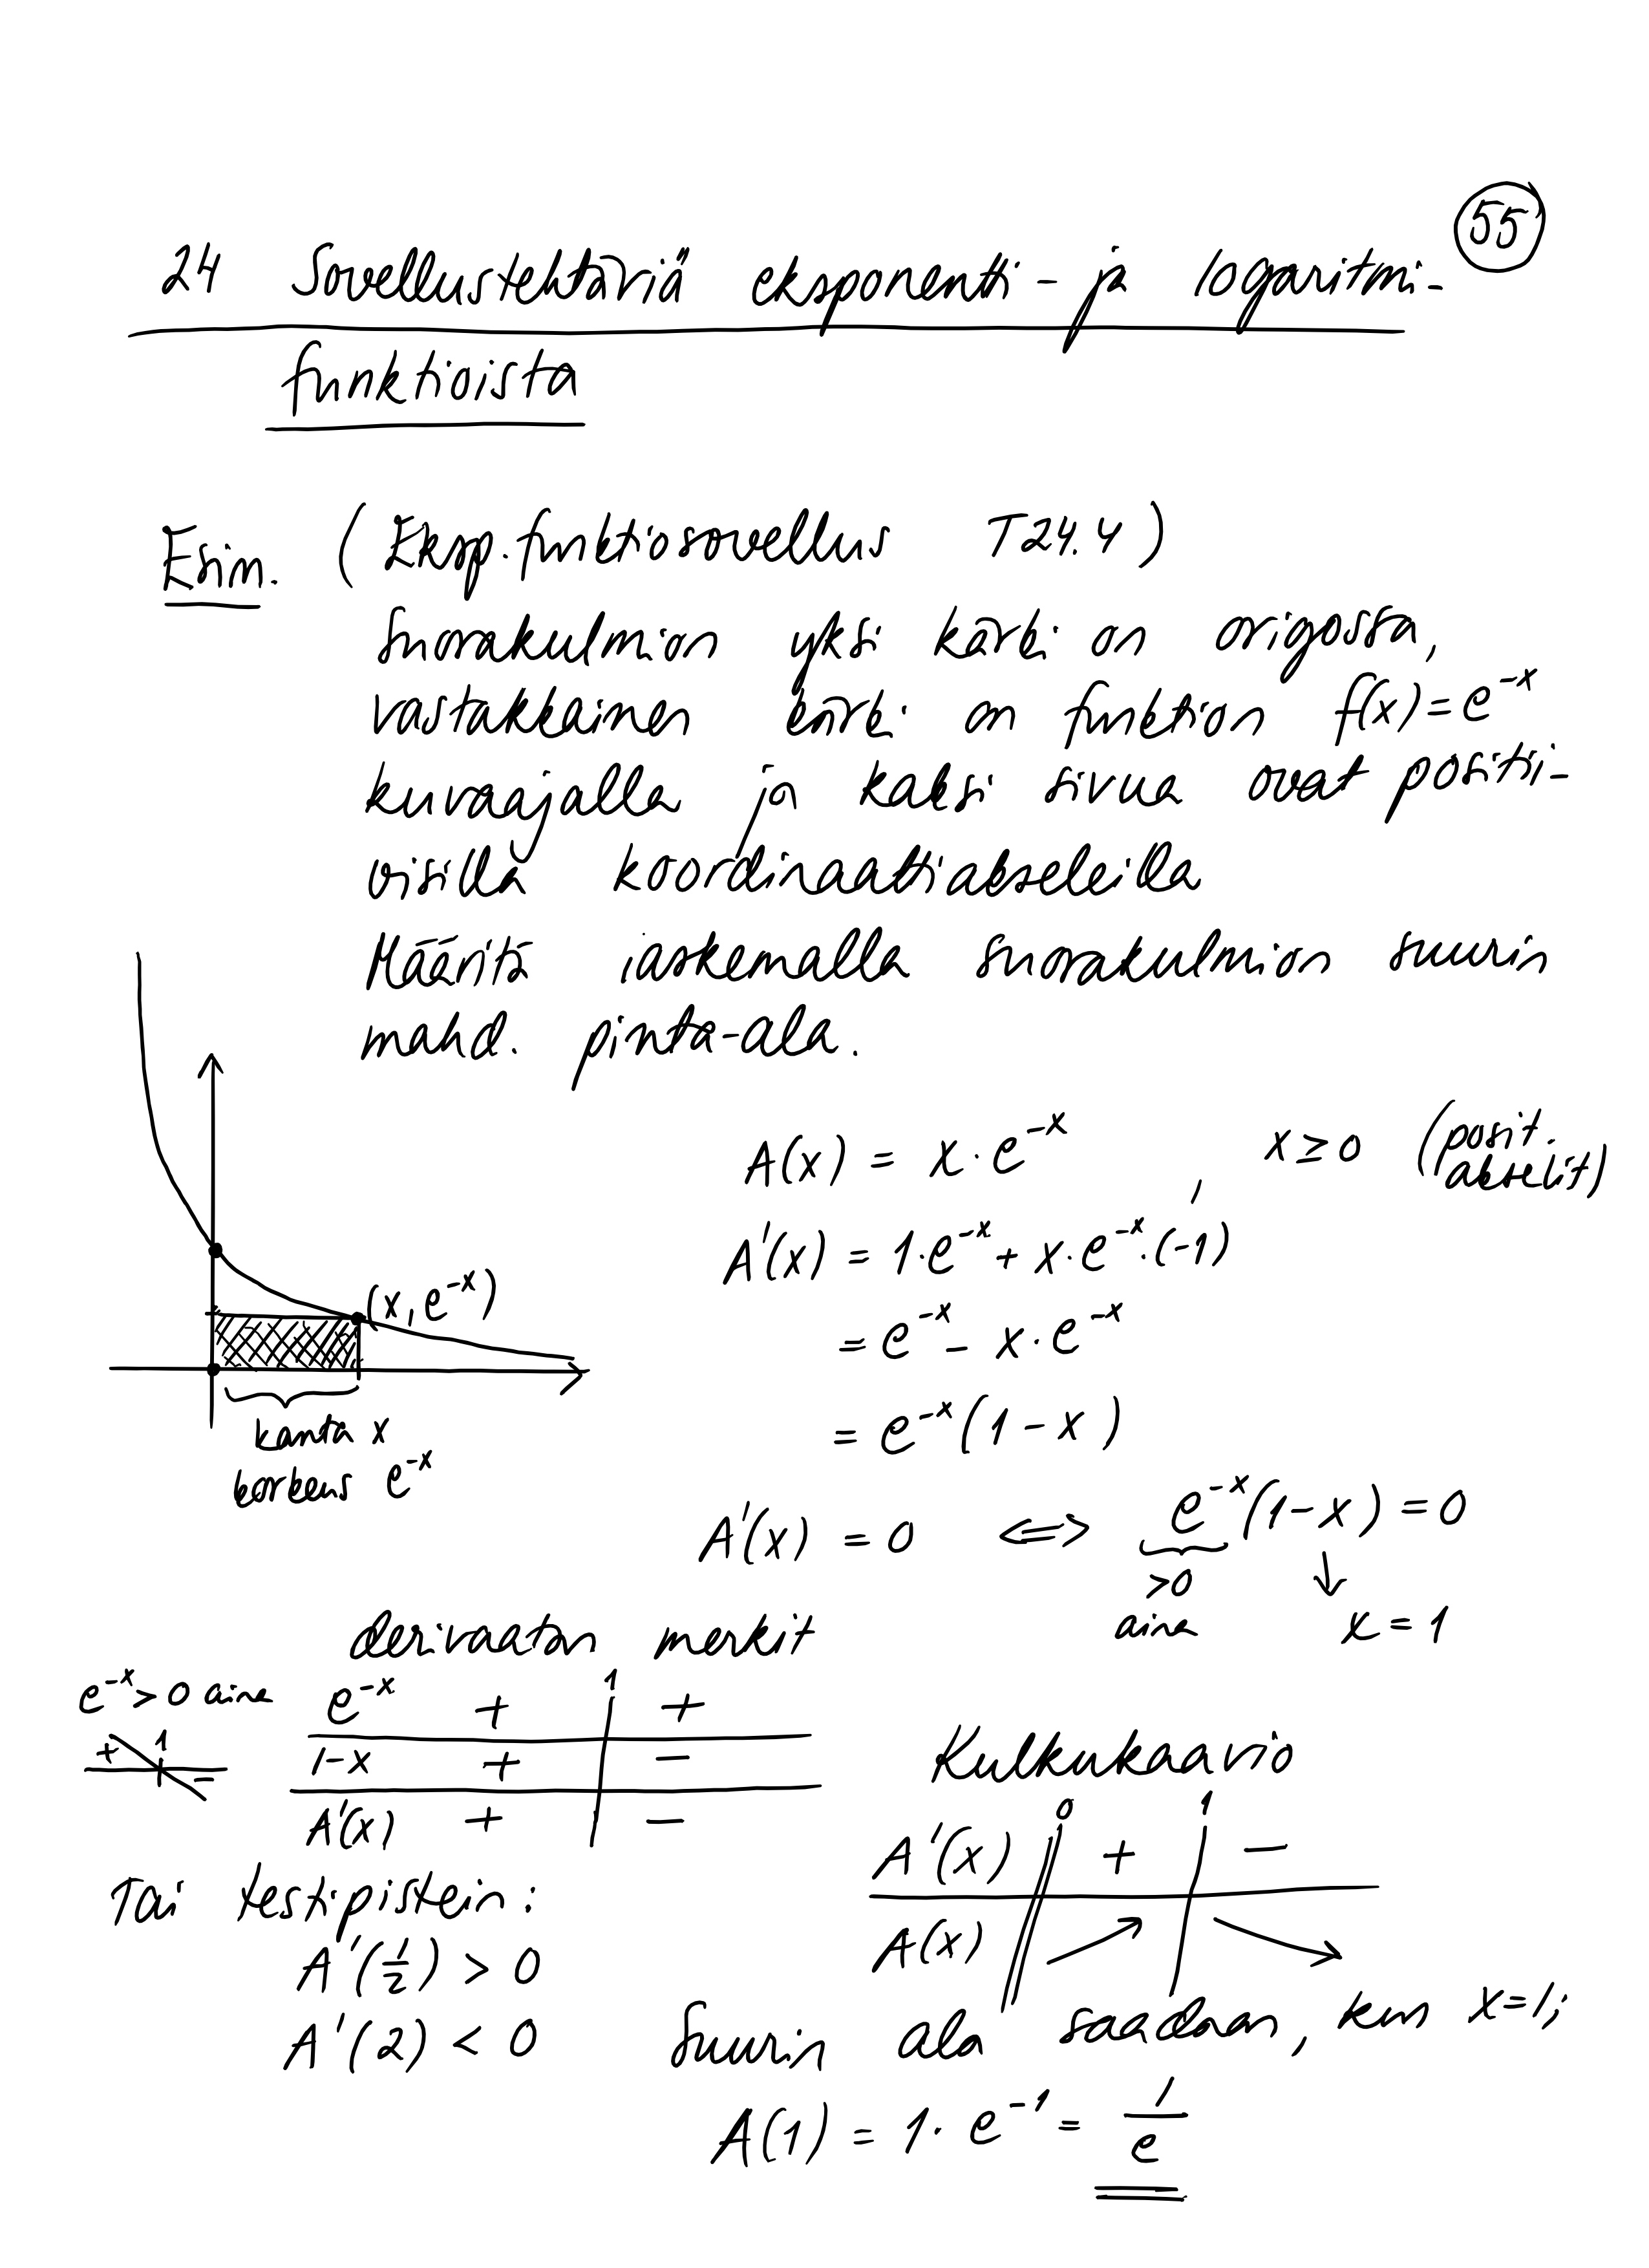 55
24 Sovellustehtäviä eksponentti- ja logaritmi-
funktioista
Esim. (Eksp.funktiosovellus T24.4)
Suorakulmion yksi kärki on origossa,
vastakkainen kärki on funktion f(x) = e^{-x}
kuvaajalla ja kaksi sivua ovat positii-
visilla koordinaattiakseleilla
Määritä laskemalla suorakulmion suurin
mahd. pinta-ala.
A(x) = x · e^{-x} , x ≥ 0 (posit. akselit)
A'(x) = 1·e^{-x} + x·e^{-x}·(-1)
= e^{-x} - x·e^{-x}
= e^{-x}(1-x)
(x, e^{-x})
kanta x
korkeus e^{-x}
A'(x) = 0 ⟺ e^{-x}(1-x) = 0
>0 ↓
aina x = 1
derivaatan merkit
e^{-x} > 0 aina
+ 1 −
1
e^{-x} + +
1-x + −
A'(x) + −
Kulkukaavio
0 1
A'(x) + −
A(x) ↗ ↘
Tai testipistein:
A'(1/2) > 0
A'(2) < 0
Suurin ala saadaan, kun x=1;
A(1) = 1 · e^{-1} = 1/e